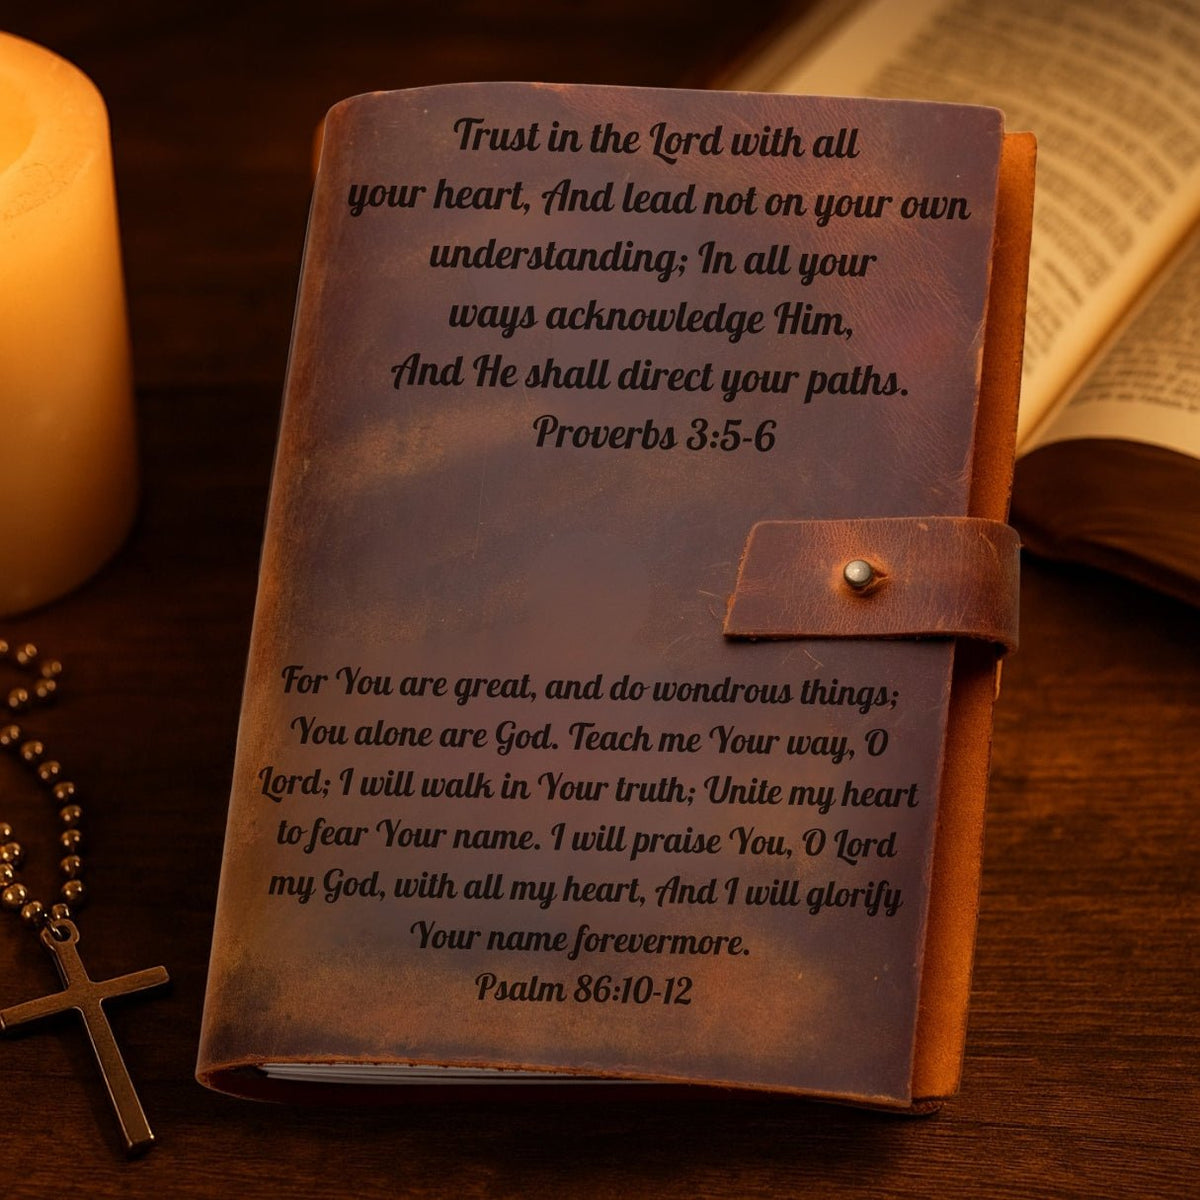 Trust in the Lord with all
your heart, And lead not on your own
understanding; In all your
ways acknowledge Him,
And He shall direct your paths.
Proverbs 3:5-6
For You are great, and do wondrous things;
You alone are God. Teach me Your way, O
Lord; I will walk in Your truth; Unite my heart
to fear Your name. I will praise You, O Lord
my God, with all my heart, And I will glorify
Your name forevermore.
Psalm 86:10-12